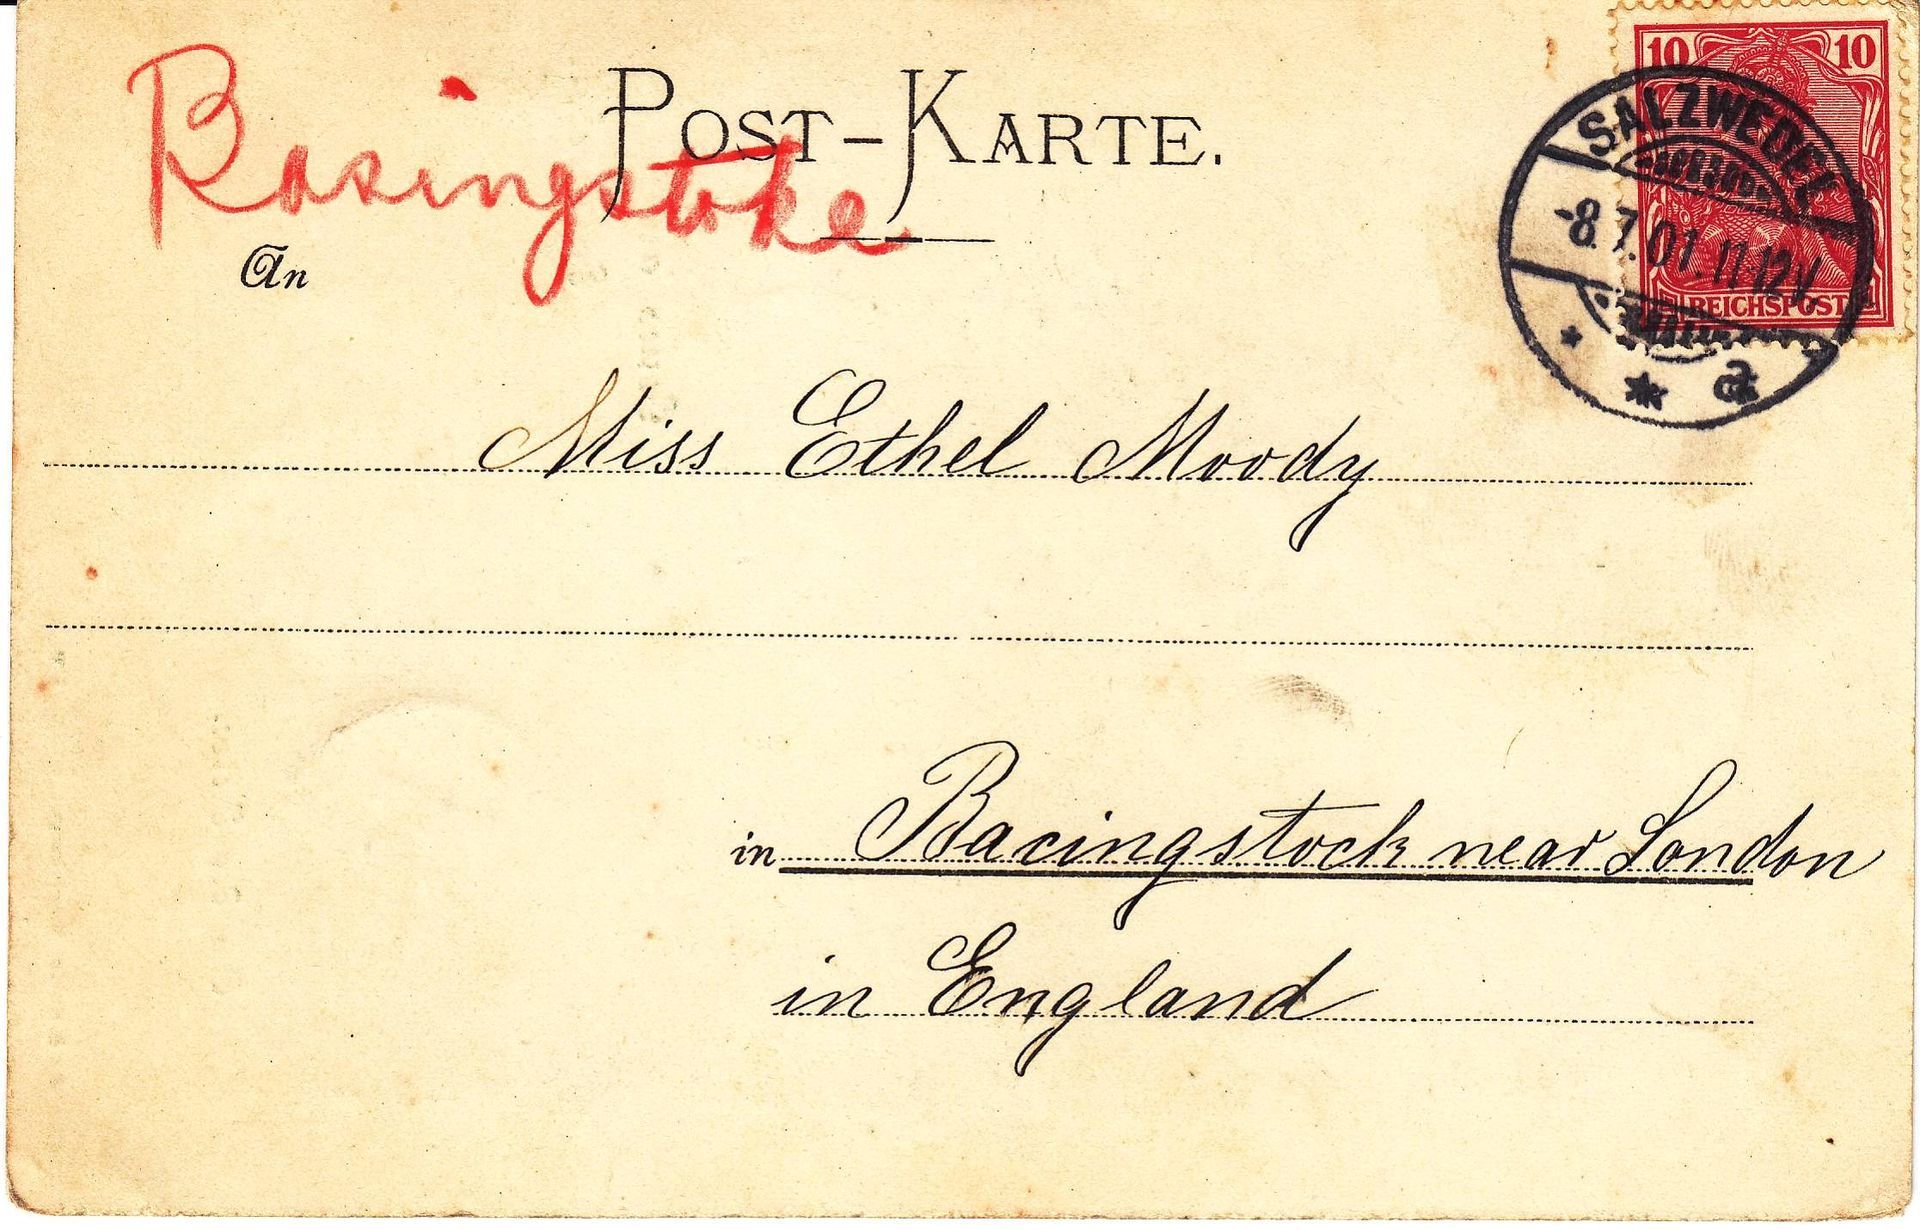 Basingstoke
POST-KARTE.
10 10
SALZWEDEL
-8.7.01.11-12V.
REICHSPOST
* * a
An
Miss Ethel Moody
in Bacingstock near London
in England